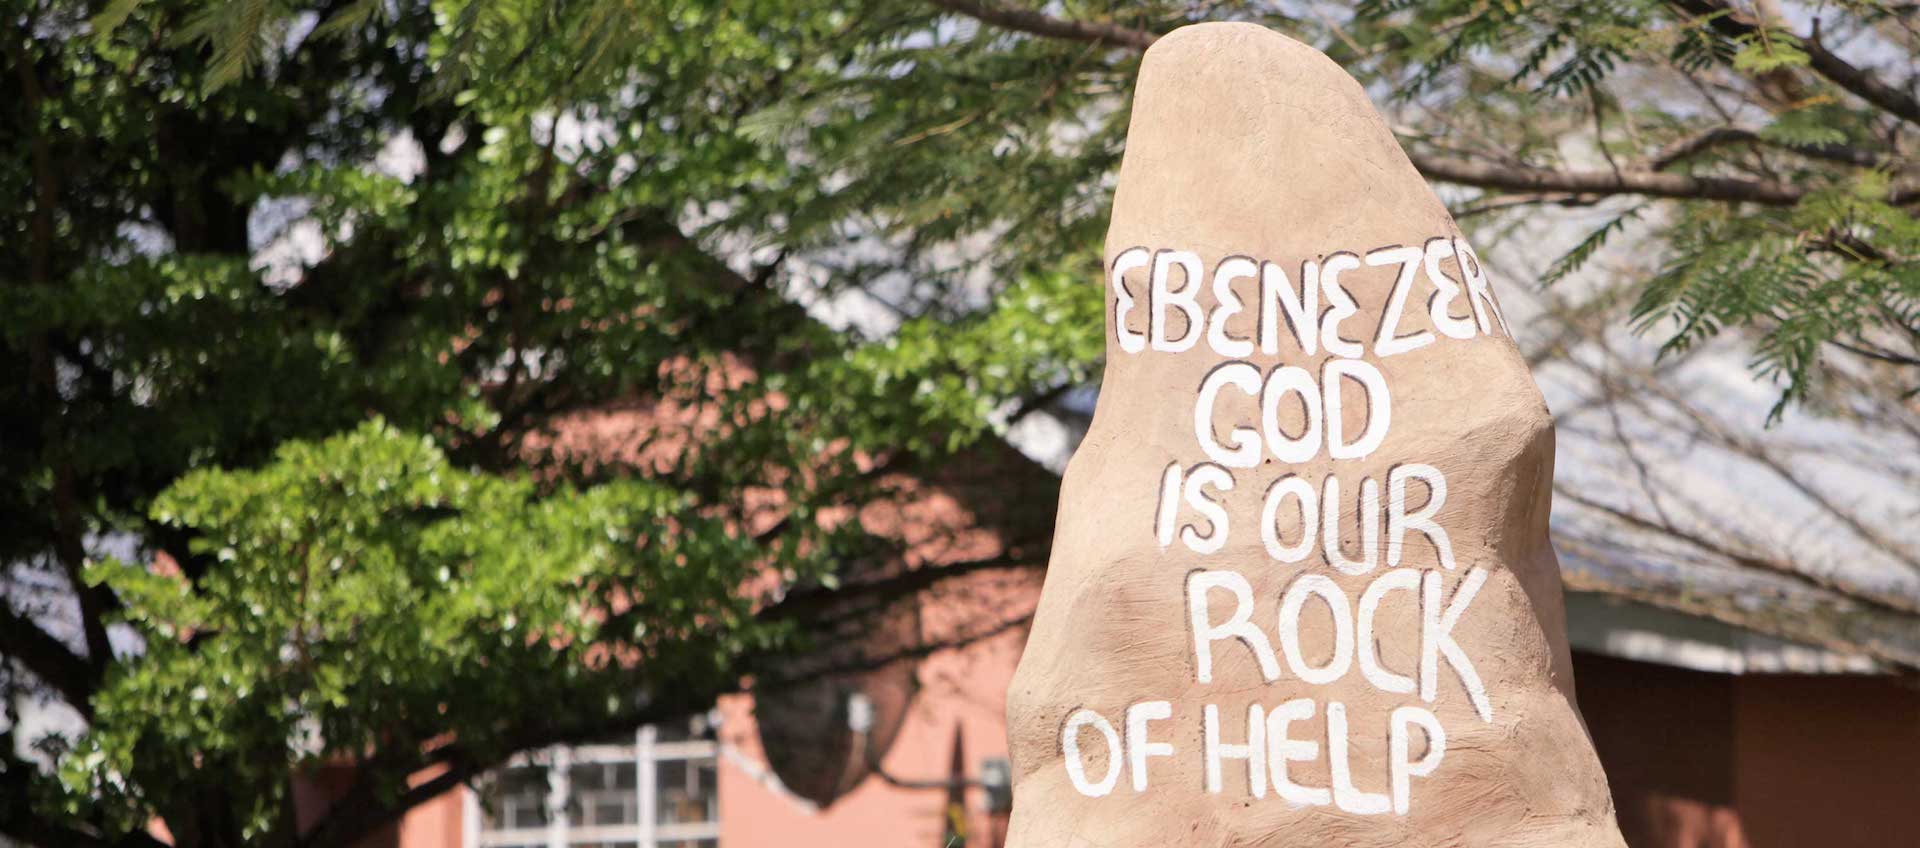 EBENEZER
GOD
IS OUR
ROCK
OF HELP